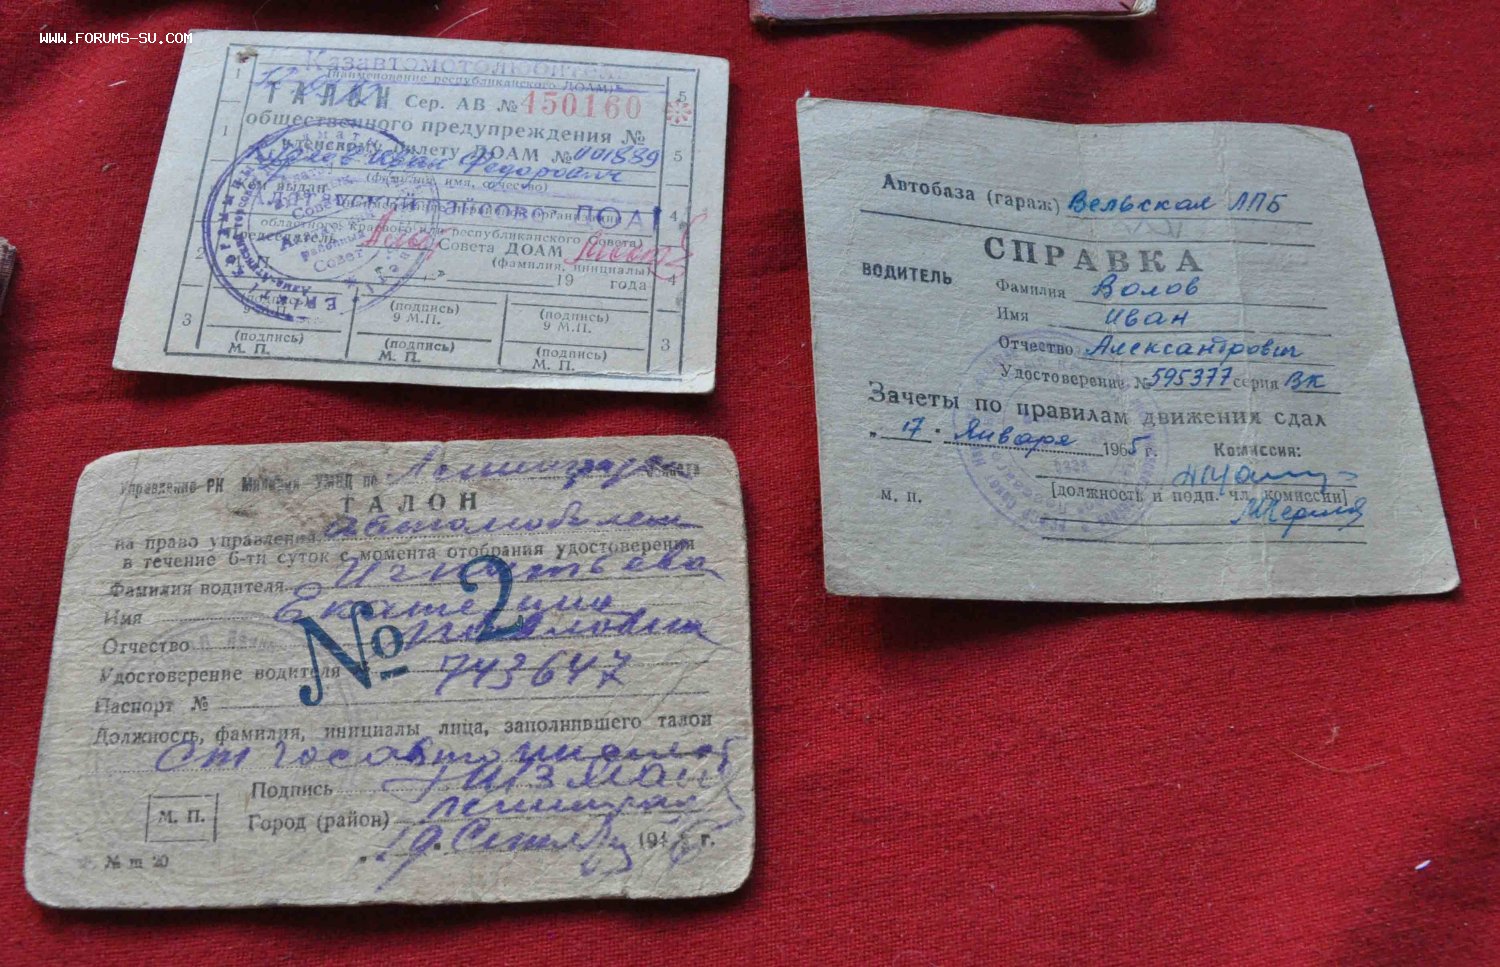 WWW.FORUMS-SU.COM
Казавтомотолюбитель
(наименование республиканского ДОАМ)
ТАЛОН Сер. АВ № 450160
общественного предупреждения №
членскому билету ДОАМ № 001889
Иван Федорович
(фамилия, имя, отчество)
Кем выдан
областного, краевого или республиканского совета)
Председатель Совета ДОАМ
(фамилия, инициалы)
« » 19 года
1 1 2 3
5 5 4 4 3
(подпись) (подпись) (подпись)
9 М.П. 9 М.П. 9 М.П.
(подпись) (подпись) (подпись)
М. П. М. П. М. П.
Автобаза (гараж) Вельская ЛПБ
СПРАВКА
ВОДИТЕЛЬ
Фамилия Волов
Имя Иван
Отчество Александрович
Удостоверение № 595377 серия ВК
Зачеты по правилам движения сдал
„ 17 " Января 1965 г. Комиссия:
[должность и подп. чл. комиссии]
м. п.
Управление РК Милиции УМВД по Ленинграду
ТАЛОН
на право управления автомобилем
в течение 6-ти суток с момента отобрания удостоверения
Фамилия водителя Игнатьева
Имя Екатерина
Отчество Павловна
Удостоверение водителя 743647
Паспорт №
№ 2
Должность, фамилия, инициалы лица, заполнившего талон
Ст госавтоинспект
Подпись
М. П.
Город (район) Ленинград
„ 19 " Сентябр 194 г.
№ ш 20